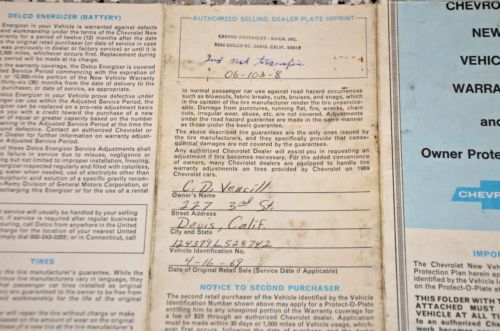 DELCO ENERGIZER (BATTERY)
Energizer in your Vehicle is warranted against defects
and workmanship under the terms of the Chevrolet New
ty for a period of twelve (12) months after the date
e original retail purchaser (or date of service in case
was previously in dealer or factory service) or until it
0 miles, whichever occurs first. Replacement during
period will be made at no charge.
the warranty coverage, the Delco Energizer is covered
ted Service Period commencing with the expiration of
or 12,000-mile portion of the New Vehicle Warranty
thirty-six (36) months from the date of delivery to the
purchaser, or date of service, as appropriate.
Energizer in your Vehicle prove defective under
iger car use within the Adjusted Service Period, the
izer can be replaced on a pro-rata adjustment basis
you with a credit toward the purchase of a new
of equal or greater capacity based on the number
ining in the Adjusted Service Period at the time the
und defective. Contact an authorized Chevrolet or
Dealer for further information on warranty adjust-
Adjusted Service Period.
of these Delco Energizer Service Adjustments shall
to failure due to misuse, negligence or
ng but not limited to improper installation, freezing,
ergizer inspected regularly and filled with colorless,
g water when needed, use of electrolyte other than
sulphuric acid solution of a specific gravity recom-
Remy Division of General Motors Corporation, or
echarging this Energizer or for the use of a rental
r service will usually be handled by your selling
if service is required after regular business
touring, call Delco Battery Distributor
charge from your location in the United
imply dial 800-243-0355: or in Connecticut, call
TIRES
the tire manufacturer's guarantee. While the
ious tire manufacturers vary in language, they
hat passenger car tires installed as original
are guaranteed to the owner to be free from
nd workmanship for the life of the original
will repair the tire without charge or make
AUTHORIZED SELLING DEALER PLATE IMPRINT
CAMPUS CHEVROLET - BUICK, INC.
DAVIS, CALIF. 95616
2nd not transfer
06-103-8
In normal passenger car use against road hazard occurrences
such as blowouts, fabric breaks, cuts, bruises, and snags, which
in the opinion of the tire manufacturer render the tire unservice-
able. Damage from punctures, running flat, fire, wrecks, chain
cuts, irregular wear, abuse, etc. are not covered. Adjustments
under the road hazard guarantee are made in the same manner
as those under the basic guarantee.
The above described tire guarantees are the only ones issued by
the tire manufacturers, and they specifically provide that conse-
quential damages are not covered by the guarantee.
Any authorized Chevrolet Dealer will assist you in requesting an
adjustment if this becomes necessary. For the added convenience
of owners, many Chevrolet dealers are equipped to handle tire
warranty adjustments on tires provided by Chevrolet on 1969
Chevrolet cars.
C. D. Vencill
Owner's Name
227 3rd St.
Street Address
Davis, Calif.
City and State
124379L528742
Vehicle Identification No.
4-16-69
Date of Original Retail Sale (Service Date if Applicable)
NOTICE TO SECOND PURCHASER
The second retail purchaser of the Vehicle Identified by the Vehicle
Identification Number shown above may apply for a Protect-O-Plate
entitling him to any unexpired portion of the Warranty coverage
for a fee of $25 through an authorized Chevrolet Dealer. Application
must be made within 30 days or 1,000 miles of vehicle usage, which-
CHEVRO
NEW
VEHIC
WARRA
and
Owner Prote
CHEVR
IMPO
The Chevrolet New Vehi
Protection Plan herein a
THIS FOLDER WITH
ATTACHED MUST
VEHICLE AT ALL